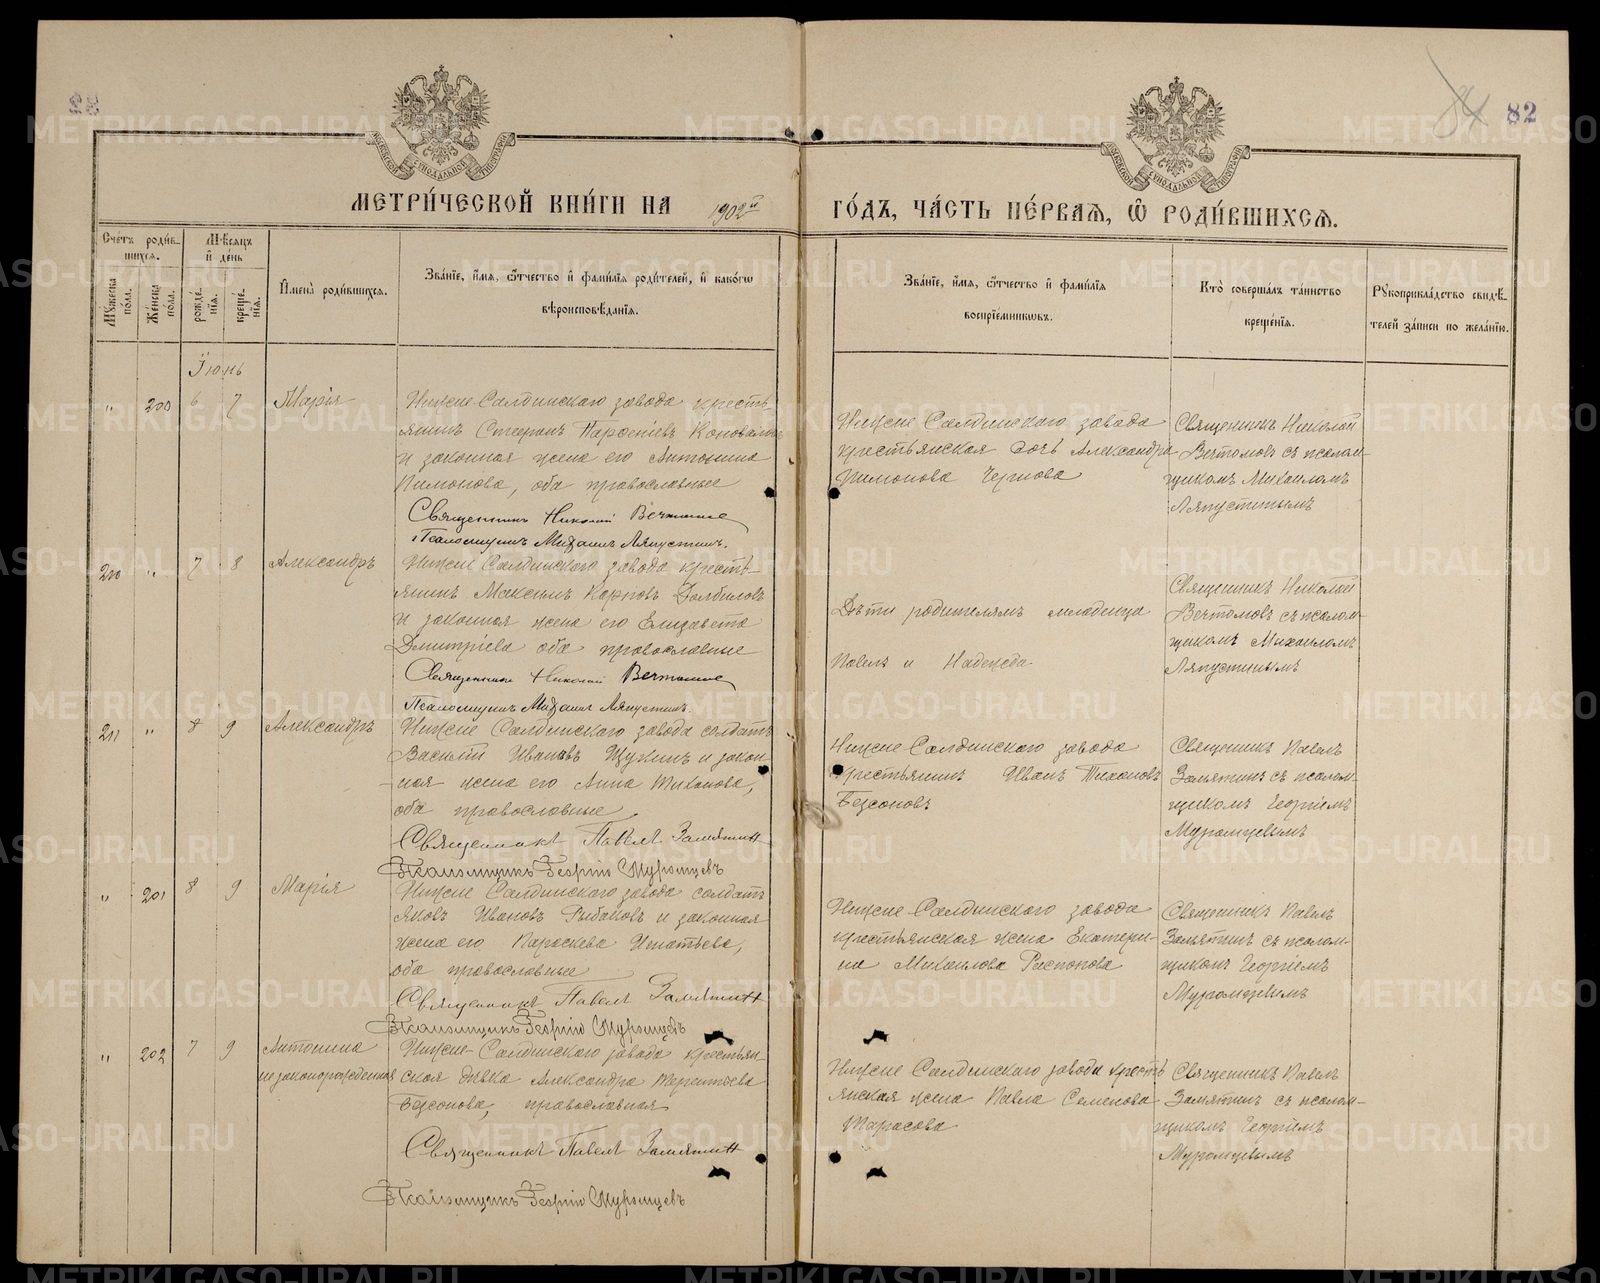 82
84
82
МЕТРИ́ЧЕСКОЙ КНИ́ГИ НА 1902й ГО́ДЪ, ЧА́СТЬ ПЕ́РВАЯ, Ѡ РОДИ́ВШИХСЯ.
Сче́тъ роди́в-
шихся.
Мѣсяцъ
и де́нь
Му́жеска по́ла.
Же́нска по́ла.
рожде́-
нїя.
креще́-
нїя.
И҆мена̀ роди́вшихся.
Зва́нїе, и҆́мя, ѻ҆́тчество и҆ фами́лїя роди́телей, и҆ како́гѡ
вѣроисповѣ́данїя.
Зва́нїе, и҆́мя, ѻ҆́тчество и҆ фами́лїя
воспрїе́мниковъ.
Кто̀ соверша́лъ та́инство
креще́нїя.
Рꙋкоприкла́дство свидѣ́-
телей за́писи по жела́нїю.
Іюнь
" 200 6 7 Марія
Нижне Салдинскаго завода кресть-
янинъ Стефанъ Парѳеніевъ Коноваловъ
и законная жена его Антонина
Пимонова, оба православные
Священникъ Николай Вечтомовъ
Псаломщикъ Михаилъ Ляпустинъ.
Нижне Салдинскаго завода
крестьянская дочь Александра
Пимонова Чернова
Священникъ Николай
Вечтомовъ съ псалом-
щикомъ Михаиломъ
Ляпустинымъ
210 " 7 8 Александръ
Нижне Салдинскаго завода кресть-
янинъ Максимъ Карповъ Долбиловъ
и законная жена его Елизавета
Дмитріева оба православные
Священникъ Николай Вечтомовъ
Псаломщикъ Михаилъ Ляпустинъ.
Дѣти родителямъ младенца
Павелъ и Надежда
Священникъ Николай
Вечтомовъ съ псалом-
щикомъ Михаиломъ
Ляпустинымъ
211 " 8 9 Александръ
Нижне Салдинскаго завода солдатъ
Василій Ивановъ Щукинъ и закон-
ная жена его Анна Тихонова,
оба православные
Священникъ Павелъ Замятин
Псаломщикъ Георгій Муромцевъ
Нижне Салдинскаго завода
крестьянинъ Иванъ Тихоновъ
Безсоновъ
Священникъ Павелъ
Замятинъ съ псалом-
щикомъ Георгіемъ
Муромцевымъ
" 201 8 9 Марія
Нижне Салдинскаго завода солдатъ
Яковъ Ивановъ Рыбаковъ и законная
жена его Параскева Игнатьева,
оба православные
Священникъ Павелъ Замятин
Псаломщикъ Георгій Муромцевъ
Нижне-Салдинскаго завода
крестьянская жена Екатери-
на Михаилова Распопова
Священникъ Павелъ
Замятинъ съ псалом-
щикомъ Георгіемъ
Муромцевымъ
" 202 7 9 Антонина
незаконорожденная
Нижне-Салдинскаго завода крестьян-
ская дѣвка Александра Терентьева
Безсонова, православная
Священникъ Павелъ Замятин
Псаломщикъ Георгій Муромцевъ
Нижне Салдинскаго завода кресть-
янская жена Павла Семенова
Тарасова
Священникъ Павелъ
Замятинъ съ псалом-
щикомъ Георгіемъ
Муромцевымъ
METRIKI.GASO-URAL.RU